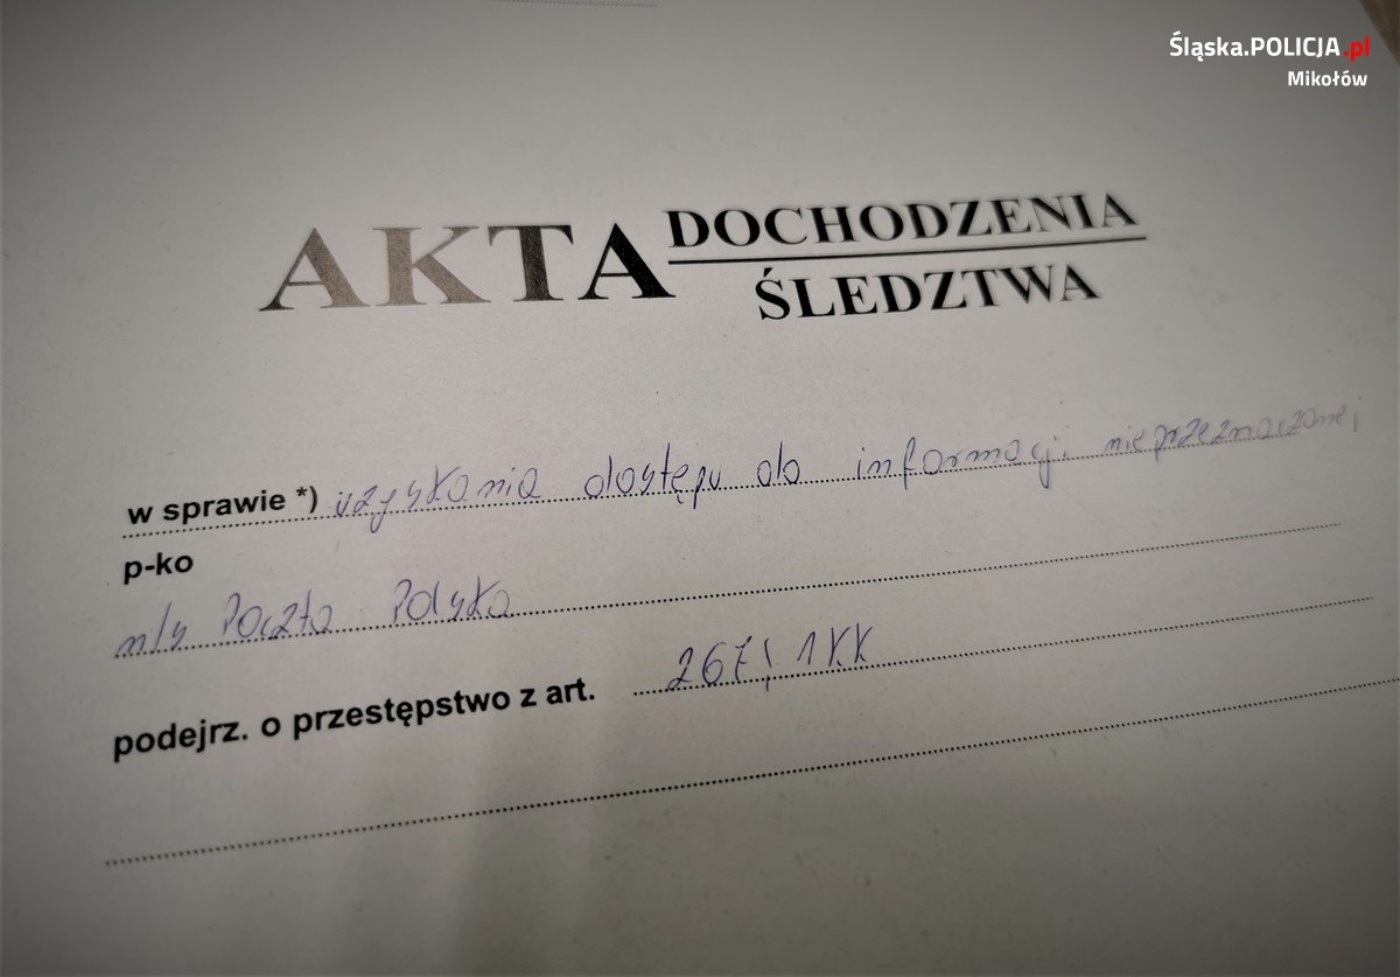 Śląska.POLICJA.pl
Mikołów
AKTA DOCHODZENIA
ŚLEDZTWA
w sprawie *) uzyskania dostępu do informacji nieprzeznaczonej
p-ko
m/s Poczta Polska
podejrz. o przestępstwo z art. 267§1KK